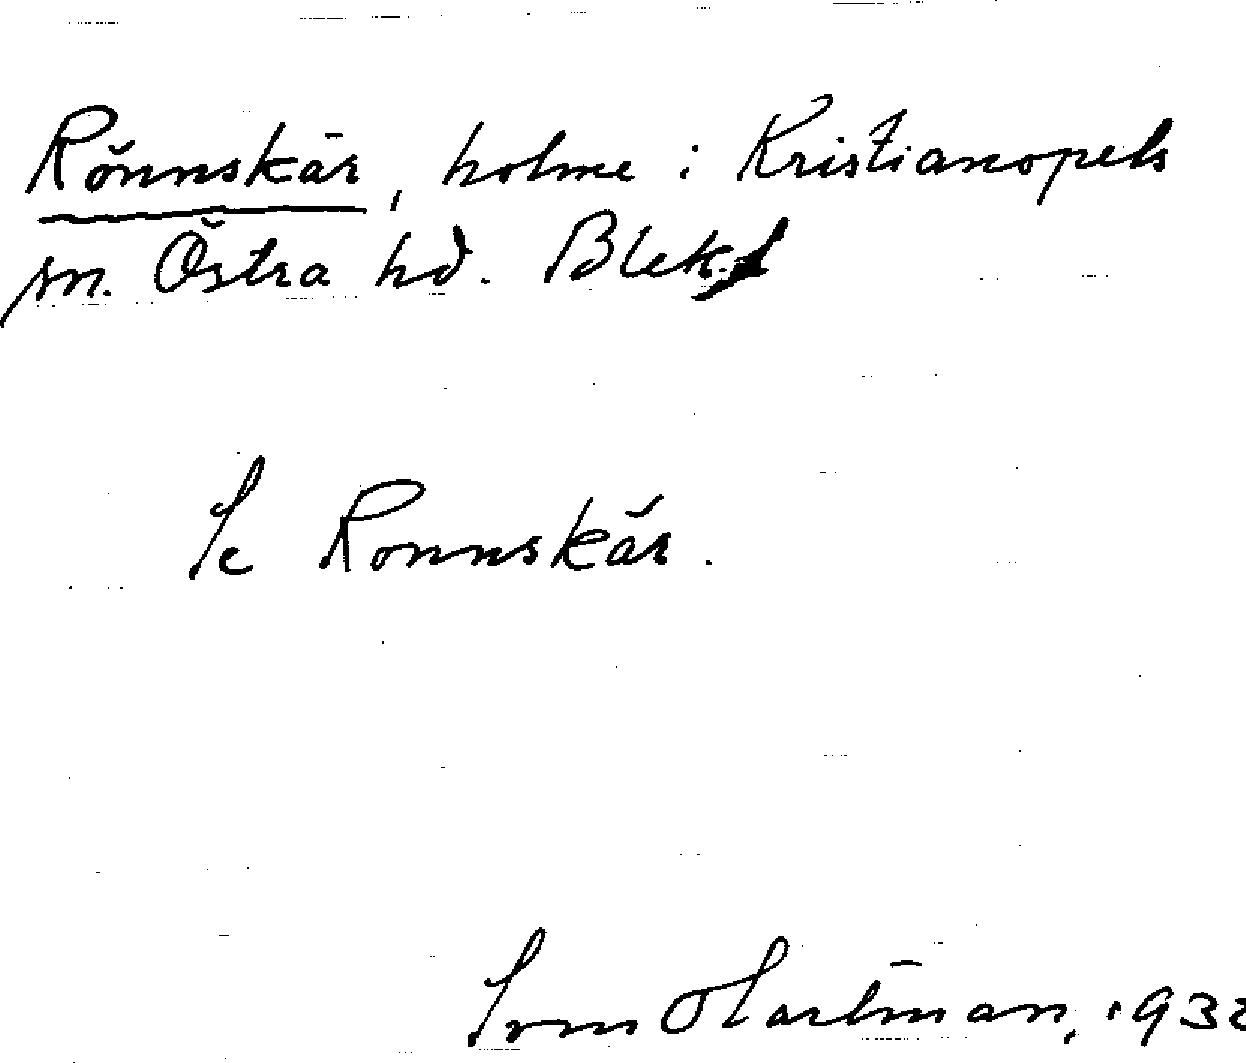 Rönnskär, holme i Kristianopels
sn. Östra hd. Blek.
Se Ronnskär.
Sven Hartman, 1932